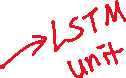 LSTM
unit